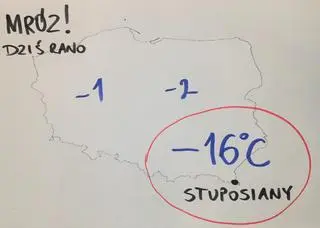 MRÓZ!
DZIŚ RANO
-1
-2
-16°C
STUPOSIANY